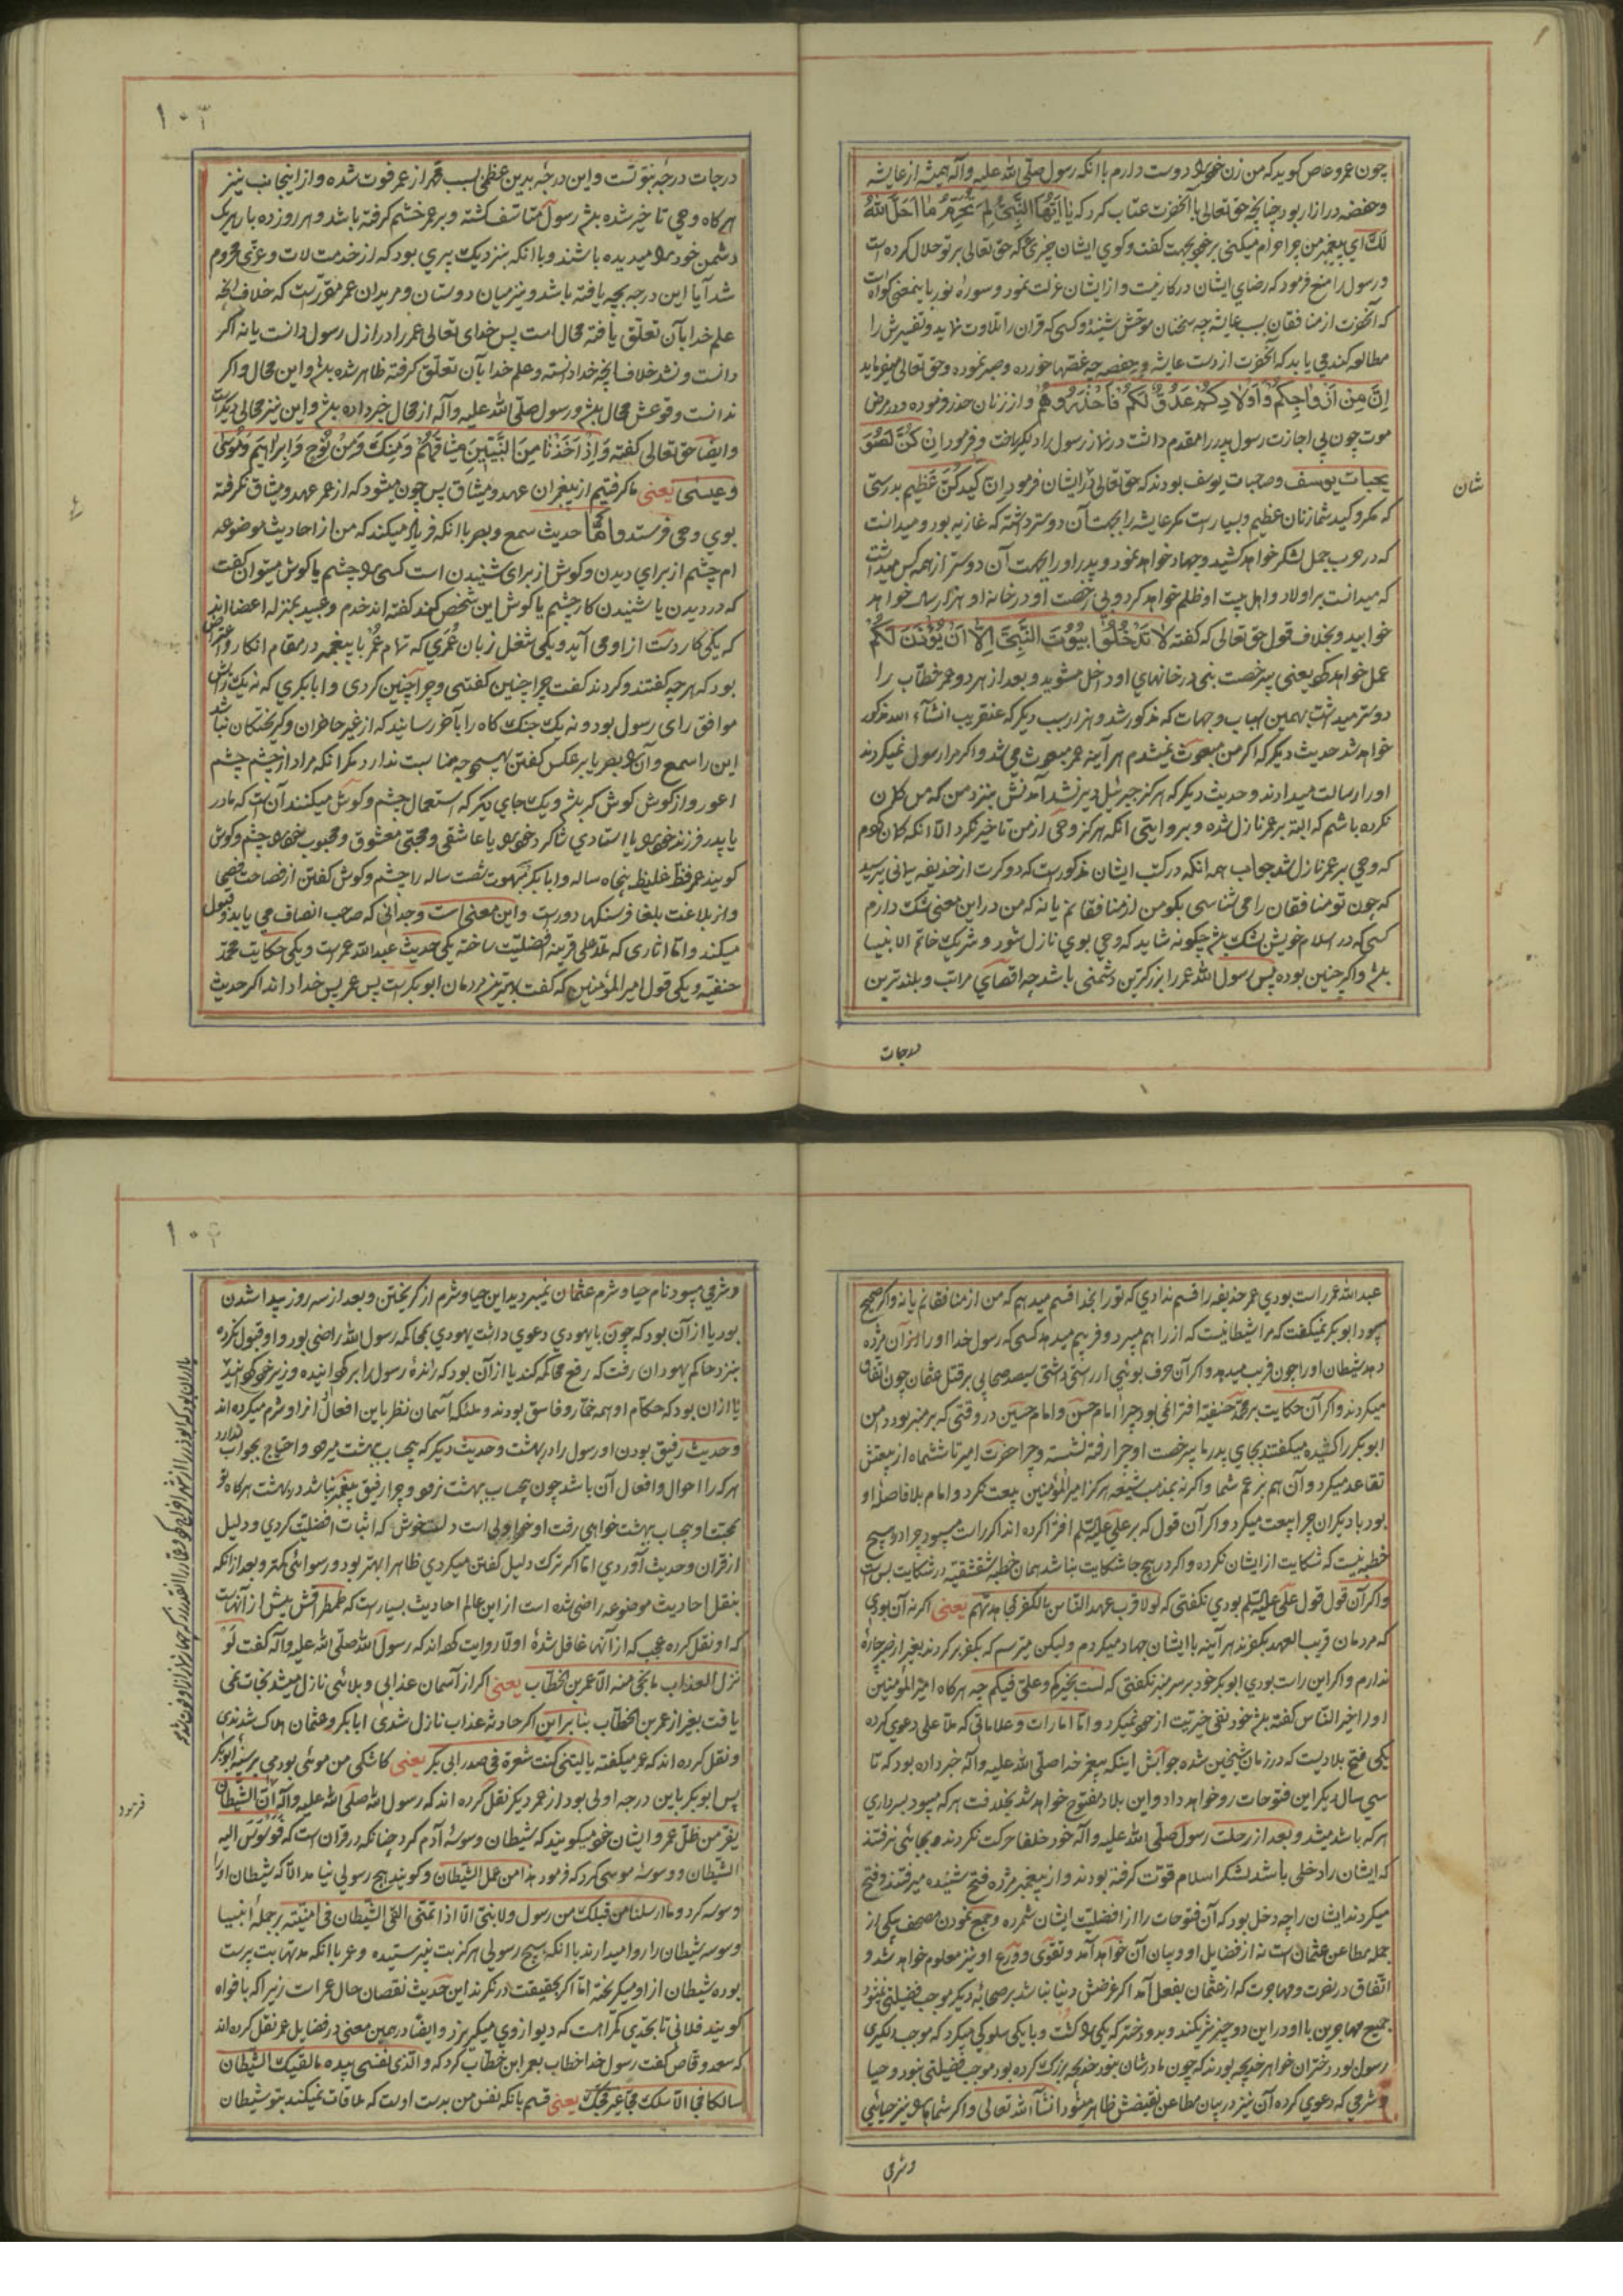 چون عمرو عاص کوید که من زن خود را دوست دارم با انکه رسول صلی الله علیه وآله همیشه از عایشه
وحفضه در ازار بود چنانچه حق تعالی با آنحضرت عتاب کرد که یا ایها النبی لم تحرم ما احل الله
لک ای پیغمبر من چرا حرام میکنی بر خود بجهت کفت وکوی ایشان چیزی که حق تعالی بر تو حلال کرده است
ورسول را منع فرمود که رضای ایشان در کار نیست واز ایشان عزلت نمود وسوره نور باینمعنی کواه است
که آنحضرت از منافقان بسبب عایشه چه سخنان موحش شنیده وکسی که قران را تلاوت نماید وتفسیرش را
مطالعه کند می یابد که آنحضرت از دست عایشه وحفصه چه غصها خورده وصبر نموده وحق تعالی میفرماید
ان من ازواجکم واولادکم عدوا لکم فاحذروهم واز زنان حذر فرموده ودر مرض
موت چون بی اجازت رسول پدر را مقدم داشت در نماز رسول را دیکر ساخت وفرمود ان کن لصو
یحبات یوسف وصحبات یوسف بودند که حق تعالی در ایشان فرمود ان کید کن عظیم بدرستی
که مکر وکید شما زنان عظیم وبسیار است مکر عایشه را بجهت آن دوستر داشته که غازیه بود ومیدانست
که در حرب جمل لشکر خواهد کشید وجهاد خواهد نمود وپدر او را بجهت آن دوستر از همه کس میداشت
که میدانست بر اولاد واهل بیت او ظلم خواهد کرد وبی رخصت او در خانه او هزار سال خواهد
خوابید وبخلاف قول حق تعالی که کفته لا تدخلوا بیوت النبی الا ان یؤذن لکم
عمل خواهد کرد یعنی بی رخصت نبی در خانهای او داخل مشوید وبعد از هر دو عمر خطاب را
دوستر میداشت بهمین اسباب وجهات که مذکور شد وهزار سبب دیکر که عنقریب انشاء الله مذکور
خواهد شد حدیث دیکر که اکر من مبعوث نمیشدم هر آینه عمر مبعوث می شد واکر مرا رسول نمیکردند
او را رسالت میدادند وحدیث دیکر که هرکز جبرئیل دیر نشد آمدنش بنزد من که من کان
نکرده باشم که البته بر عمر نازل شده وبروایتی انکه هرکز وحی از من تاخیر نکرد الا انکه کان کردم
که وحی بر عمر نازل شد جواب همه انکه در کتب ایشان مذکور است که دو کرت از حذیفه یمانی پرسید
که چون تو منافقان را می شناسی بکو من از منافقانم یا نه که من در این معنی شک دارم
کسی که در اسلام خویش بشک باشد چکونه شاید که وحی بوی نازل شود وشریک خاتم الانبیا
باشد واکر چنین بوده پس رسول الله عمر را بزرکترین دشمنی باشد چه اقصای مراتب وبلندترین
درجات
شان
۱۰۳
درجات درجه نبوتست واین درجه بدین عظمی بسبب قهر از عمر فوت شده واز اینجانب نیز
هرکاه وحی تاخیر شده باشد رسول متاسف کشته وبر عمر خشم کرفته باشد وهر روز ده بار بیک
دشمن خود را میدیده باشند وبا انکه بنزدیک پیری بود که از خدمت لات وعزی محروم
شد آیا این درجه بچه یافته باشد ونیز میان دوستان ومریدان عمر مقرر است که خلاف انچه
علم خدا بآن تعلق یافته محال است پس خدای تعالی عمر را در ازل رسول دانست یا نه اکر
دانست ونشد خلاف انچه خدا دانسته وعلم خدا بآن تعلق کرفته ظاهر شده باشد واین محال واکر
ندانست وقوعش محال باشد ورسول صلی الله علیه وآله از محال خبر داده باشد واین نیز محالی دیکر است
وایضا حق تعالی کفته واذ اخذنا من النبیین میثاقهم ومنک ومن نوح وابراهیم وموسی
وعیسی یعنی ما کرفتیم از پیغمبران عهد ومیثاق پس چون میشود که از عمر عهد ومیثاق نکرفته
بوی وحی فرستد واما حدیث سمع وبصر با انکه فریاد میکند که من از احادیث موضوعه
ام چشم از برای دیدن وکوش از برای شنیدن است کسی را چشم یا کوش میتوان کفت
که در دیدن یا شنیدن کار چشم یا کوش این شخص کند کفته اند خدم وعبید بمنزله اعضا اند
که یکی کار دست از او می آید ویکی شغل زبان عمری که تمام عمر با پیغمبر در مقام انکار واعتراض
بود که هر چه کفتند وکردند کفت چرا چنین کفتی وچرا چنین کردی وابابکری که نه یک رایش
موافق رای رسول بود ونه یک جنک کاه را بآخر رسانید که از غیر حاضران وکریختکان نباشد
این را سمع وآن را بصر یا بر عکس کفتن هیچ وجه مناسبت ندارد مکر انکه مراد از چشم چشم
اعور واز کوش کوش کر باشد ویک جای دیکر که استعمال چشم وکوش میکنند آن است که مادر
یا پدر فرزند خود را یا استادی شاکرد خود را یا عاشقی ومحبی معشوق ومحبوب خود را چشم وکوش
کویند عمر فظ غلیظ پنجاه ساله وابابکر مبهوت شصت ساله را چشم وکوش کفتن از فصاحت فصحا
واز بلاغت بلغا فرسنکها دور است واین معنی است وجدانی که صاحب انصاف می یابد وقبول
میکند واما اثاری که ملا علی قرینه افضلیت ساخته یکی حدیث عبدالله عمر است ویکی حکایت محمد
حنفیه ویکی قول امیر المؤمنین که کفت بهترین مردمان ابوبکر است پس عمر پس خدا داند اکر حدیث
عبدالله عمر راست بودی عمر حذیفه را قسم ندادی که تو را بخدا قسم میدهم که من از منافقانم یا نه واکر صحیح
میبود ابوبکر نمیکفت که مرا شیطانیست که از راهم میبرد وفریبم میدهد کسی که رسول خدا او را از آن مژده
دهد شیطان او را چون فریب میدهد واکر آن حرف بوئی از راستی داشتی سیصد صحابی بر قتل عثمان چون اتفاق
میکردند واکر آن حکایت بر محمد حنفیه افترا نمی بود چرا امام حسن وامام حسین در وقتی که بر منبر بود دامن
ابوبکر را کشیده میکفتند بجای پدر ما بیرخصت او چرا رفته نشسته وچرا حضرت امیر تا ششماه از بیعتش
تقاعد میکرد وآن هم بزعم شما واکر نه بمذهب شیعه هرکز امیر المؤمنین بیعت نکرد وامام بلافاصله او
بود با دیکران چرا بیعت میکرد واکر آن قول که بر علی علیه السلم افترا کرده اند اکر راست میبود چرا در هیچ
خطبه نیست که شکایت از ایشان نکرده واکر در هیچ جا شکایت نباشد همان خطبه شقشقیه در شکایت بس است
واکر آن قول قول علی علیه السلم بودی نکفتی که لولا قرب عهد الناس بالکفر لجاهدتهم یعنی اکر نه آن بودی
که مردمان قریب العهد بکفرند هر آینه با ایشان جهاد میکردم ولیکن میترسم که بکفر برکردند بغیر از صبر چاره
ندارم واکر این راست بودی ابوبکر خود بر سر منبر نکفتی که لست بخیرکم وعلی فیکم چه هرکاه امیر المؤمنین
او را خیر الناس کفته باشد خود نفی خیریت از خود نمیکرد واما امارات وعلاماتی که ملا علی دعوی کرده
یکی فتح بلاد است که در زمان شیخین شده جوابش اینکه پیغمبر خدا صلی الله علیه وآله خبر داده بود که تا
سی سال دیکر این فتوحات رو خواهد داد واین بلاد مفتوح خواهد شد بخلافت هر که میبود بسرداری
هر که باشد میشد وبعد از رحلت رسول صلی الله علیه وآله خود خلفا حرکت نکردند وبجائی نرفتند
که ایشان را دخلی باشد لشکر اسلام قوت کرفته بودند واز پیغمبر مژده فتح شنیده میرفتند وفتح
میکردند ایشان را چه دخل بود که آن فتوحات را از افضلیت ایشان شمرده وجمع نمودن مصحف یکی از
جمله مطاعن عثمان است نه از فضایل او وبیان آن خواهد آمد وتقوی وورع او نیز معلوم خواهد شد و
اتفاق در نصرت ومهاجرت که از عثمان بفعل آمد اکر غرضش دنیا نباشد بر صحابه دیکر موجب فضیلتی نبود
جمیع مهاجرین با او در این دو چیز شریکند وبدو دختر که یکی را کشت وبا یکی سلوکی میکرد که موجب دلکیری
رسول بود دختران خواهر خدیجه بودند که چون مادرشان نبود خدیجه بزرک کرده بود موجب فضیلتی نبود وحیا
وشرمی که دعوی کرده آن نیز در بیان مطاعن نقیضش ظاهر میشود انشاء الله تعالی واکر شما را نیز حیائی
وشرمی
۱۰۴
وشرمی میبود نام حیا وشرم عثمان نمیبردید این حیا وشرم از کریختن وبعد از سه روز پیدا شدن
بود یا از آن بود که چون با یهودی دعوی داشت یهودی بمحاکمه رسول الله راضی بود واو قبول نکرده
بنزد حاکم یهودان رفت که رفع محاکمه کند یا از آن بود که رانده رسول را برکردانیده وزیر خود کردانید
یا از آن بود که حکام او همه خمار وفاسق بودند وملئکه آسمان نظر باین افعال از او شرم میکرده اند
وحدیث رفیق بودن او رسول را در بهشت وحدیث دیکر که بیحساب ببهشت میرود احتیاج بجواب ندارد
هر که را احوال وافعال آن باشد چون بیحساب ببهشت نرود وچرا رفیق پیغمبر نباشد در بهشت هرکاه تو
بمحبت او بیحساب بهشت خواهی رفت او خود اولی است دلت خوش که اثبات افضلیت کردی ودلیل
از قران وحدیث آوردی اما اکر ترک دلیل کفتن میکردی ظاهرا بهتر بود ورسوائی کمتر وبعد از انکه
بنقل احادیث موضوعه راضی شده است از این عالم احادیث بسیار است که طمطراقش بیش از آنهاست
که او نقل کرده عجب که از آنها غافل شده اولا روایت کرده اند که رسول الله صلی الله علیه وآله کفت لو
نزل العذاب ما نجی منه الا عمر بن الخطاب یعنی اکر از آسمان عذابی وبلائی نازل میشد نجات نمی
یافت بغیر از عمر بن الخطاب بنا براین اکر حادثه عذاب نازل شدی ابابکر وعثمان هلاک شدندی
ونقل کرده اند که عمر میکفته یا لیتنی کنت شعرة فی صدر ابی بکر یعنی کاشکی من موئی بودمی بر سینه ابوبکر
پس ابوبکر باین درجه اولی بود از عمر دیکر نقل کرده اند که رسول الله صلی الله علیه وآله ان الشیطان
یفر من ظل عمر وایشان خود میکویند که شیطان وسوسه آدم کرد چنانکه در قران است که فوسوس الیه
الشیطان ووسوسه موسی کرد که فرمود هذا من عمل الشیطان وکویند هیچ رسولی نیامد الا که شیطان او را
وسوسه کرد وما ارسلنا من قبلک من رسول ولا نبی الا اذا تمنی القی الشیطان فی امنیته بر جمله انبیا
وسوسه شیطان را روا میدارند با انکه هیچ رسولی هرکز بت نپرستیده وعمر با انکه مدتها بت پرست
بوده شیطان از او میکریخته اما اکر بحقیقت در نکرند این حدیث نقصان حال عمر است زیرا که بافواه
کویند فلانی تا بحدی کمراه است که دیو از وی میکریزد وایضا در همین معنی در فضایل عمر نقل کرده اند
که سعد وقاص کفت رسول خدا خطاب بعمر ابن خطاب کرد که والذی نفسی بیده ما لقیک الشیطان
سالکا فجا الا سلک فجا غیر فجک یعنی قسم بانکه نفس من بدست اوست که ملاقات نمیکند بتو شیطان